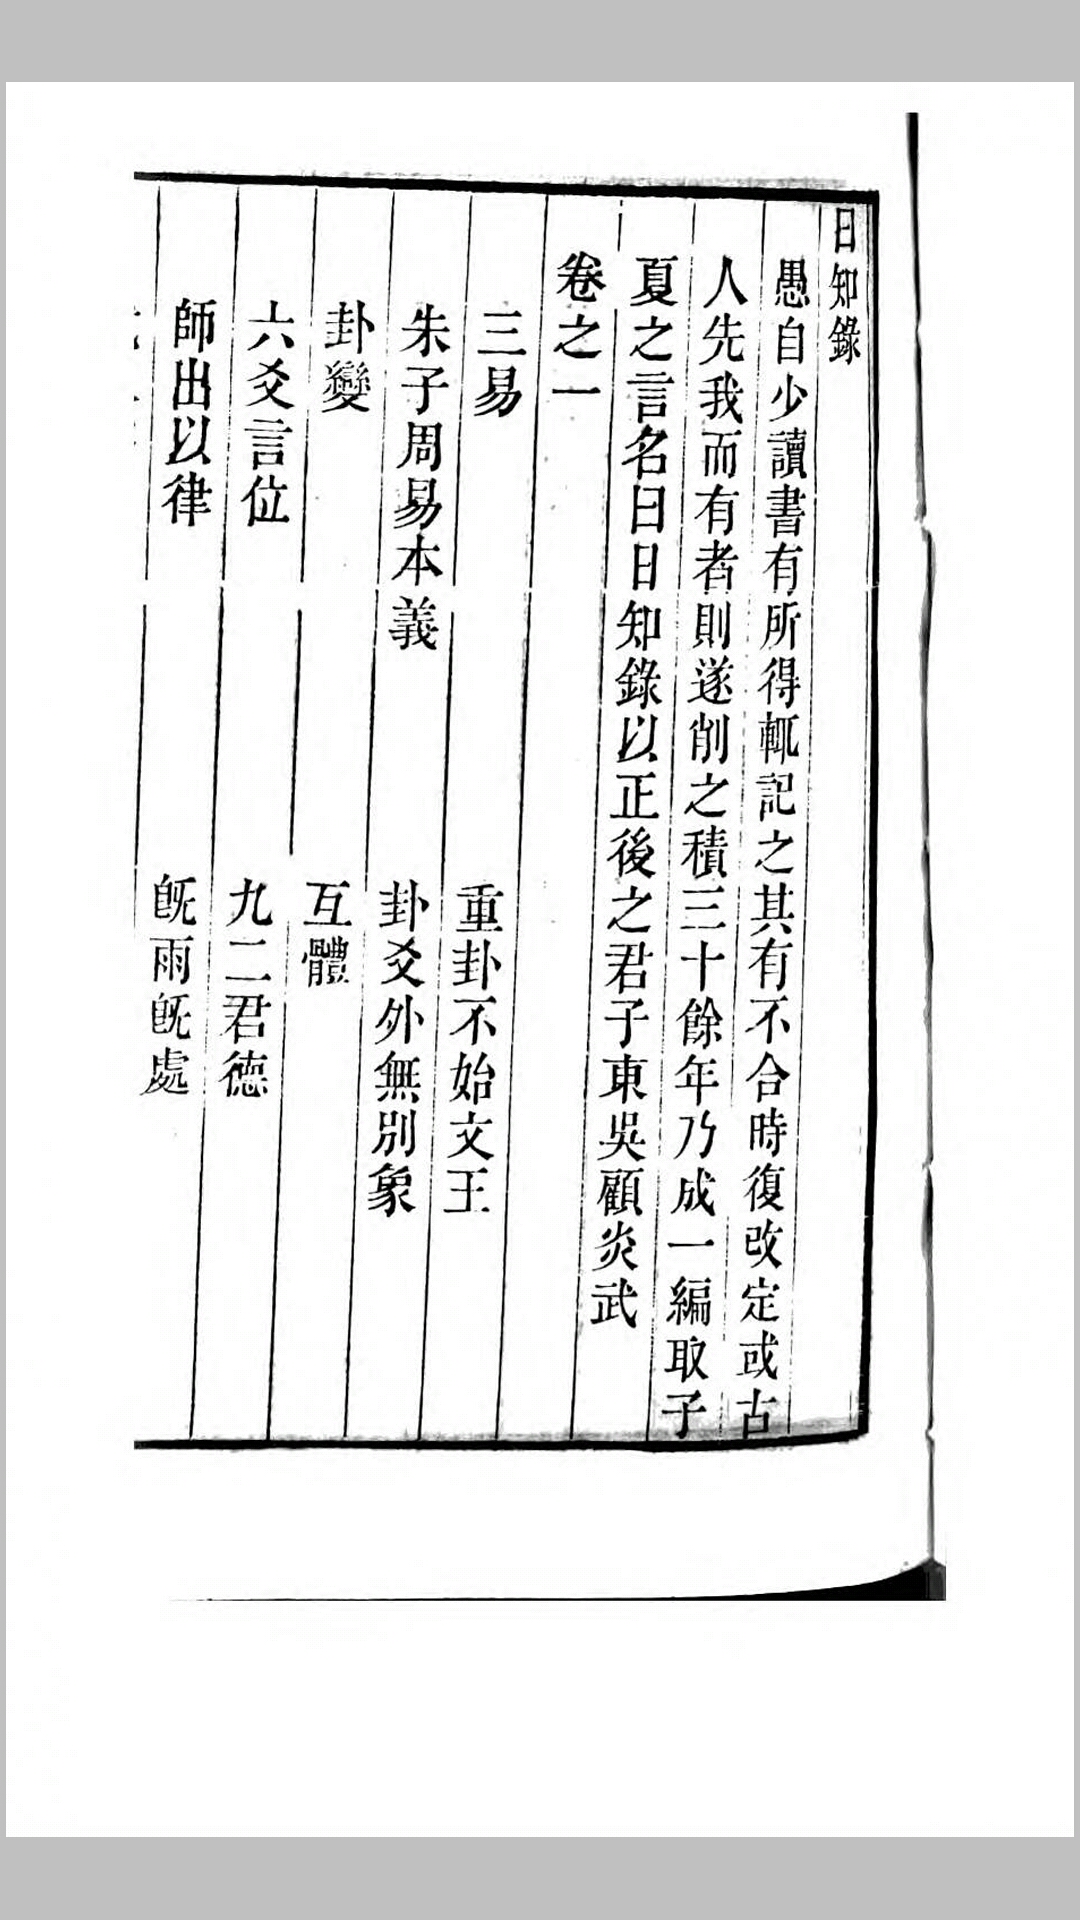 日知錄
愚自少讀書有所得輒記之其有不合時復改定或古
人先我而有者則遂削之積三十餘年乃成一編取子
夏之言名曰日知錄以正後之君子東吳顧炎武
卷之一
三易　重卦不始文王
朱子周易本義　卦爻外無別象
卦變　互體
六爻言位　九二君德
師出以律　旣雨旣處